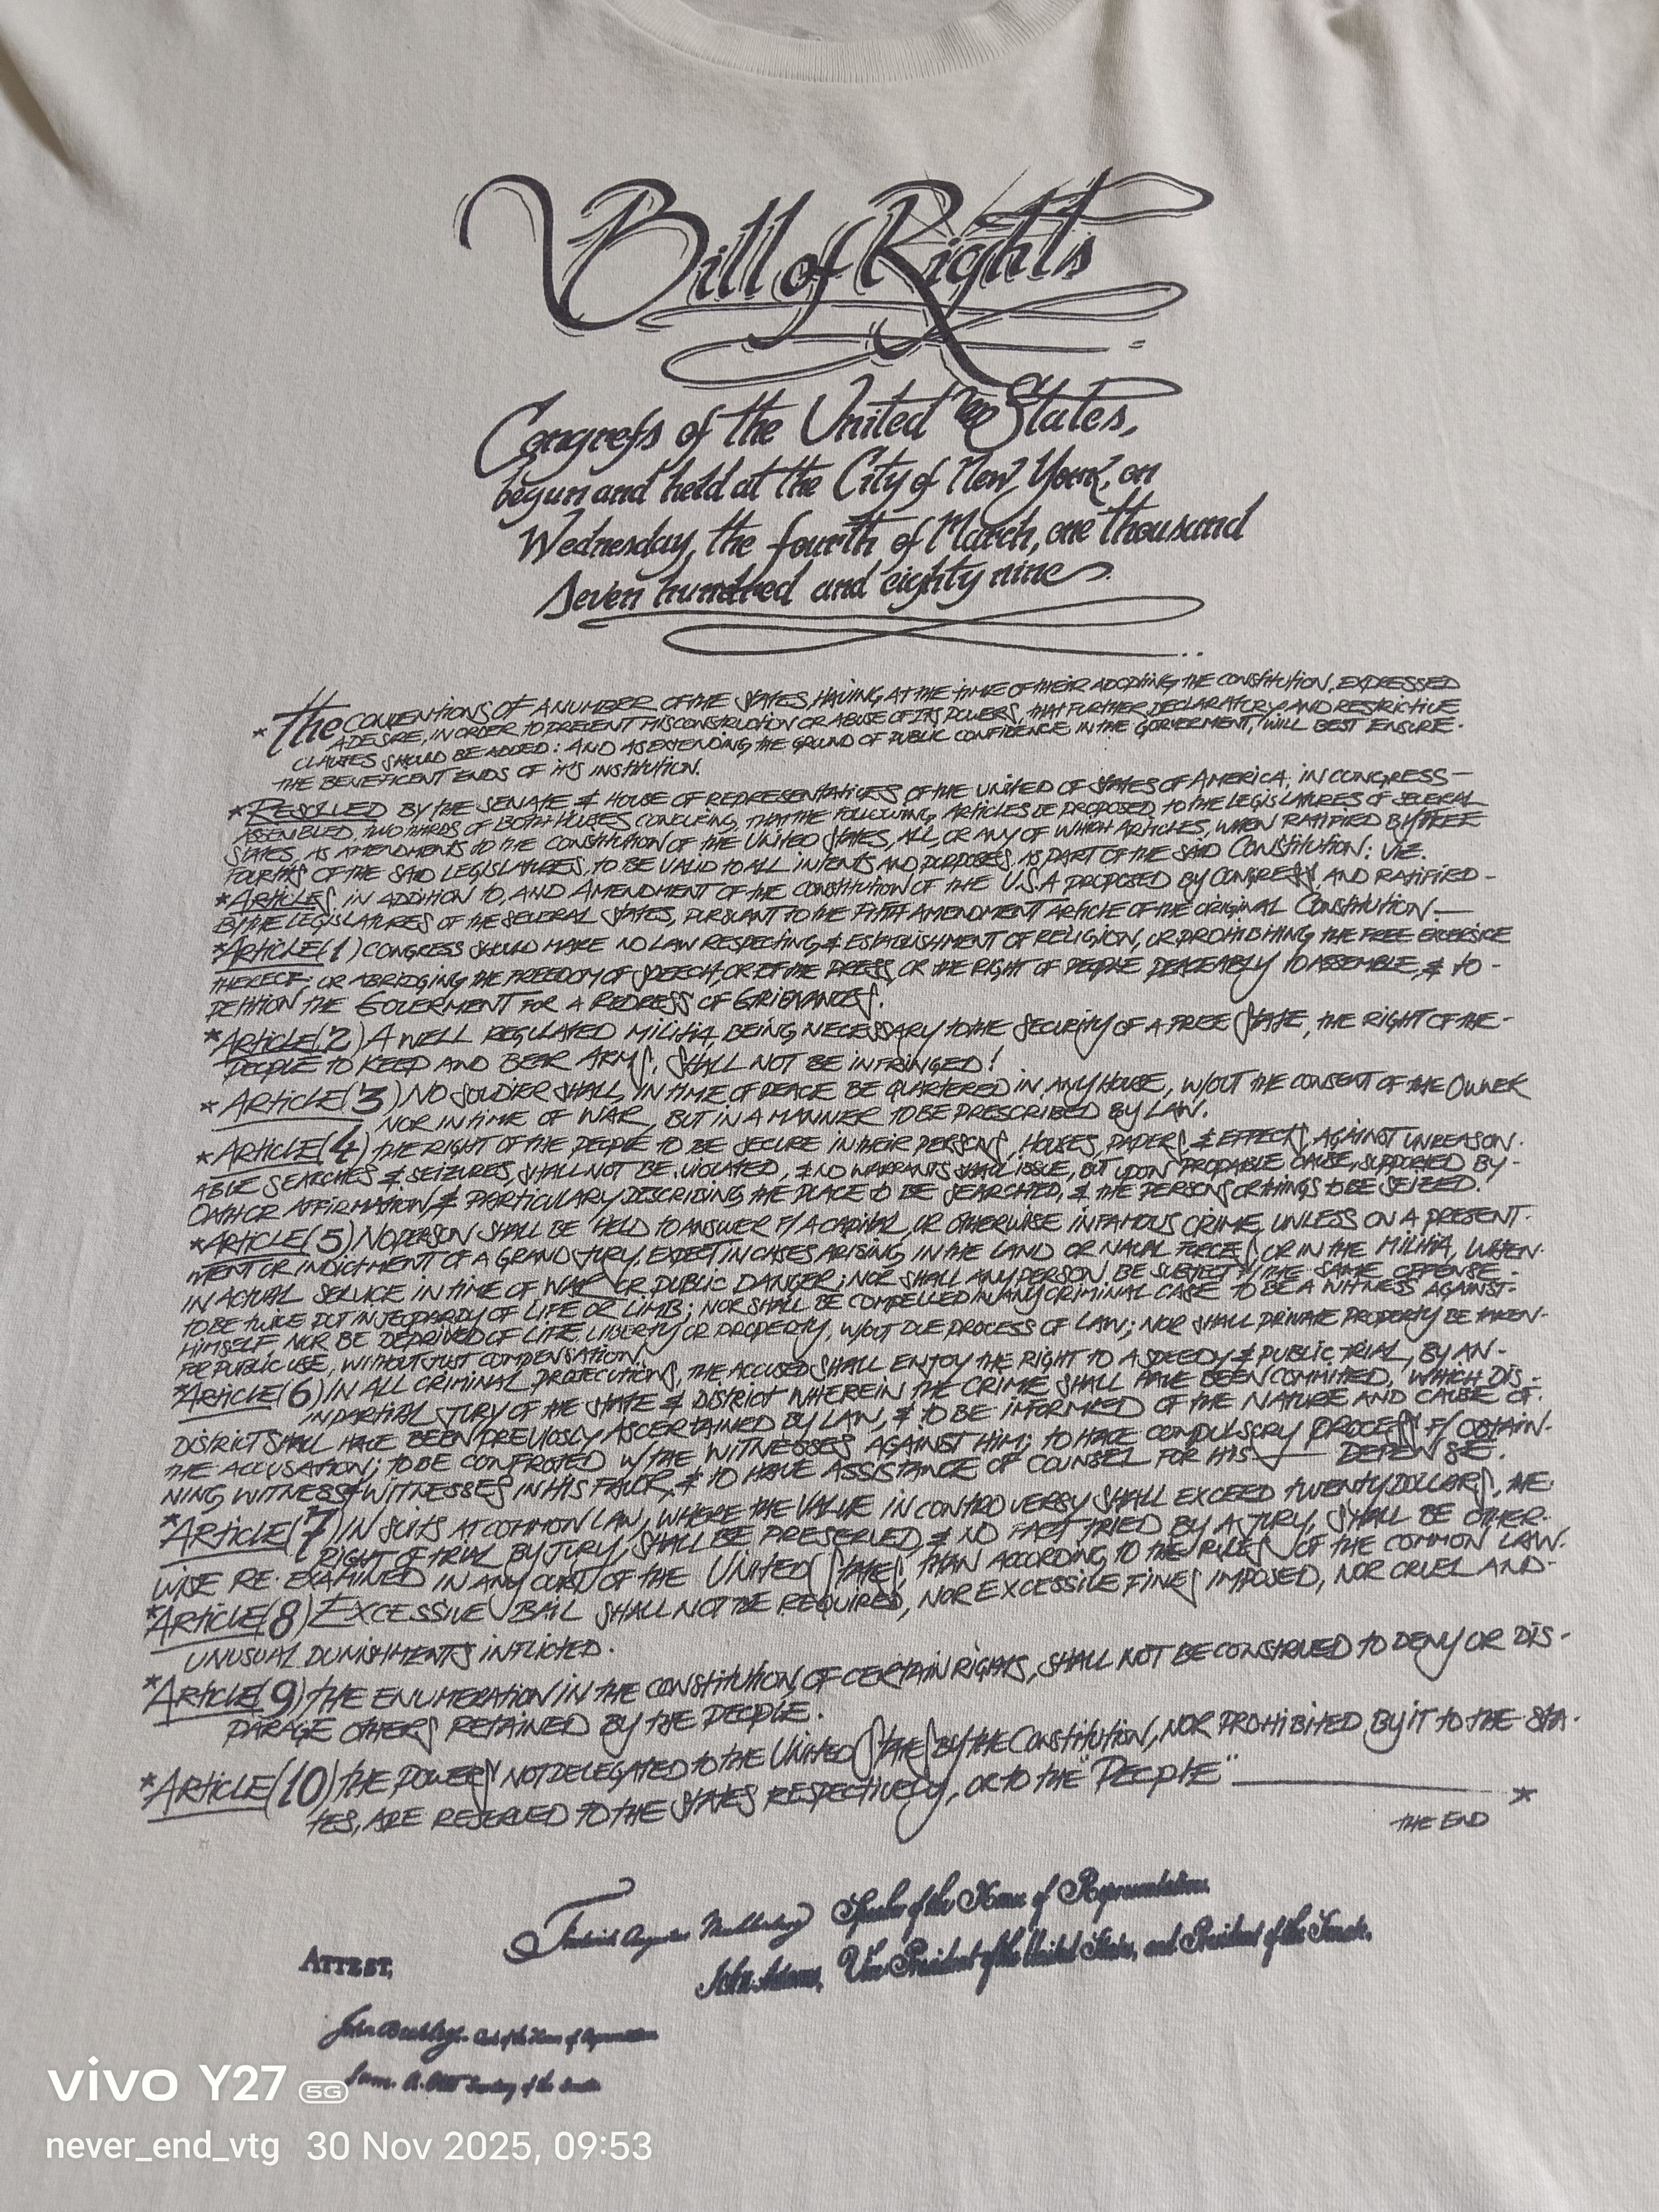 Bill of Rights
Congreſs of the United States,
begun and held at the City of New York, on
Wednesday, the fourth of March, one thousand
Seven hundred and eighty nine
*The CONVENTIONS OF A NUMBER OF THE STATES, HAVING AT THE TIME OF THEIR ADOPTING THE CONSTITUTION, EXPRESSED
A DESIRE, IN ORDER TO PREVENT MISCONSTRUCTION OR ABUSE OF ITS POWERS, THAT FURTHER DECLARATORY AND RESTRICTIVE
CLAUSES SHOULD BE ADDED: AND AS EXTENDING THE GROUND OF PUBLIC CONFIDENCE IN THE GORVERMENT, WILL BEST ENSURE.
THE BENEFICENT ENDS OF ITS INSTITUTION.
*RESOLVED BY THE SENATE & HOUSE OF REPRESENTATIVES OF THE UNITED OF STATES OF AMERICA, IN CONGRESS—
ASSEMBLED, TWO THIRDS OF BOTH HOUSES CONCURING, THAT THE FOLLOWING ARTICLES BE PROPOSED, TO THE LEGISLATURES OF SEVERAL
STATES, AS AMENDMENTS TO THE CONSTITUTION OF THE UNITED STATES, ALL, OR ANY OF WHICH ARTICLES, WHEN RATIFIED BY THREE
FOURTHS OF THE SAID LEGISLATURES, TO BE VALID TO ALL INTENTS AND PURPOSES, AS PART OF THE SAID CONSTITUTION: VIZ.
*ARTICLES, IN ADDITION TO, AND AMENDMENT OF THE CONSTITUTION OF THE U.S.A PROPOSED BY CONGRESS, AND RATIFIED-
BY THE LEGISLATURES OF THE SEVERAL STATES, PURSUANT TO THE FIFTH AMENDMENT ARTICLE OF THE ORIGINAL CONSTITUTION.—
*ARTICLE(1) CONGRESS SHOULD MAKE NO LAW RESPECTING & ESTABLISHMENT OF RELIGION, OR PROHIBITING THE FREE EXERCISE
THEREOF; OR ABRIDGING THE FREEDOM OF SPEECH, OR OF THE PRESS, OR THE RIGHT OF PEOPLE PEACEABLY TO ASSEMBLE, & TO-
PETITION THE GOVERMENT FOR A REDRESS OF GRIEVANCES.
*ARTICLE(2) A WELL REGULATED MILITIA, BEING NECESSARY TO THE SECURITY OF A FREE STATE, THE RIGHT OF THE-
PEOPLE TO KEEP AND BEAR ARMS, SHALL NOT BE INFRINGED!
*ARTICLE(3) NO SOLDIER SHALL, IN TIME OF PEACE BE QUARTERED IN ANY HOUSE, W/OUT THE CONSENT OF THE OWNER
NOR IN TIME OF WAR, BUT IN A MANNER TO BE PRESCRIBED BY LAW.
*ARTICLE(4) THE RIGHT OF THE PEOPLE TO BE SECURE IN THEIR PERSONS, HOUSES, PAPERS & EFFECTS, AGAINST UNREASON-
ABLE SEARCHES & SEIZURES, SHALL NOT BE VIOLATED, & NO WARRANTS SHALL ISSUE, BUT UPON PROBABLE CAUSE, SUPPORTED BY-
OATH OR AFFIRMATION, & PARTICULARY DESCRIBING THE PLACE TO BE SEARCHED, & THE PERSONS OR THINGS TO BE SEIZED.
*ARTICLE(5) NO PERSON SHALL BE HELD TO ANSWER F/ A CAPITAL, OR OTHERWISE INFAMOUS CRIME, UNLESS ON A PRESENT-
MENT OR INDICTMENT OF A GRAND JURY, EXPECT IN CASES ARISING IN THE LAND OR NAVAL FORCES, OR IN THE MILITIA, WHEN-
IN ACTUAL SERVICE IN TIME OF WAR OR PUBLIC DANGER; NOR SHALL ANY PERSON BE SUBJECT F/ THE SAME OFFENSE-
TO BE TWICE PUT IN JEOPARDY OF LIFE OR LIMB; NOR SHALL BE COMPELLED IN ANY CRIMINAL CASE TO BE A WITNESS AGAINST-
HIMSELF, NOR BE DEPRIVED OF LIFE, LIBERTY OR PROPERTY, W/OUT DUE PROCESS OF LAW; NOR SHALL PRIVATE PROPERTY BE TAKEN-
FOR PUBLIC USE, WITHOUT JUST COMPENSATION.
*ARTICLE(6) IN ALL CRIMINAL PROSECUTIONS, THE ACCUSED SHALL ENJOY THE RIGHT TO A SPEEDY & PUBLIC TRIAL, BY AN-
INPARTIAL JURY OF THE STATE & DISTRICT WHEREIN THE CRIME SHALL HAVE BEEN COMMITED, WHICH DIS-
DISTRICT SHALL HAVE BEEN PREVIOSLY ASCERTAINED BY LAW, & TO BE INFORMED OF THE NATURE AND CAUSE OF-
THE ACCUSATION; TO BE CONFROTED W/ THE WITNESSES AGAINST HIM; TO HAVE COMPULSORY PROCESS F/ OBTAIN-
NING WITNESS WITNESSES IN HIS FAVOR, & TO HAVE ASSISTANCE OF COUNSEL FOR HIS — DEFENSE.
*ARTICLE(7) IN SUITS AT COMMON LAW, WHERE THE VALUE IN CONTROVERSY SHALL EXCEED TWENTY DOLLARS, THE
RIGHT OF TRIAL BY JURY, SHALL BE PRESERVED, & NO FACT TRIED BY A JURY, SHALL BE OTHER-
WISE RE-EXAMINED IN ANY COURT OF THE UNITED STATES, THAN ACCORDING TO THE RULES OF THE COMMON LAW.
*ARTICLE(8) EXCESSIVE BAIL SHALL NOT BE REQUIRED, NOR EXCESSIVE FINES IMPOSED, NOR CRUEL AND-
UNUSUAL PUNISHMENTS INFLICTED.
*ARTICLE(9) THE ENUMERATION IN THE CONSTITUTION, OF CERTAIN RIGHTS, SHALL NOT BE CONSTRUED TO DENY OR DIS-
PARAGE OTHERS RETAINED BY THE PEOPLE.
*ARTICLE(10) THE POWERS NOT DELEGATED TO THE UNITED STATES BY THE CONSTITUTION, NOR PROHIBITED BY IT TO THE STA-
TES, ARE RESERVED TO THE STATES RESPECTIVELY, OR TO THE "PEOPLE" *
THE END
Frederick Augustus Muhlenberg Speaker of the House of Representatives
John Adams, Vice President of the United States, and President of the Senate.
ATTEST,
John Beckley, Clerk of the House of Representatives
Sam. A. Otis Secretary of the Senate
vivo Y27 5G
never_end_vtg 30 Nov 2025, 09:53